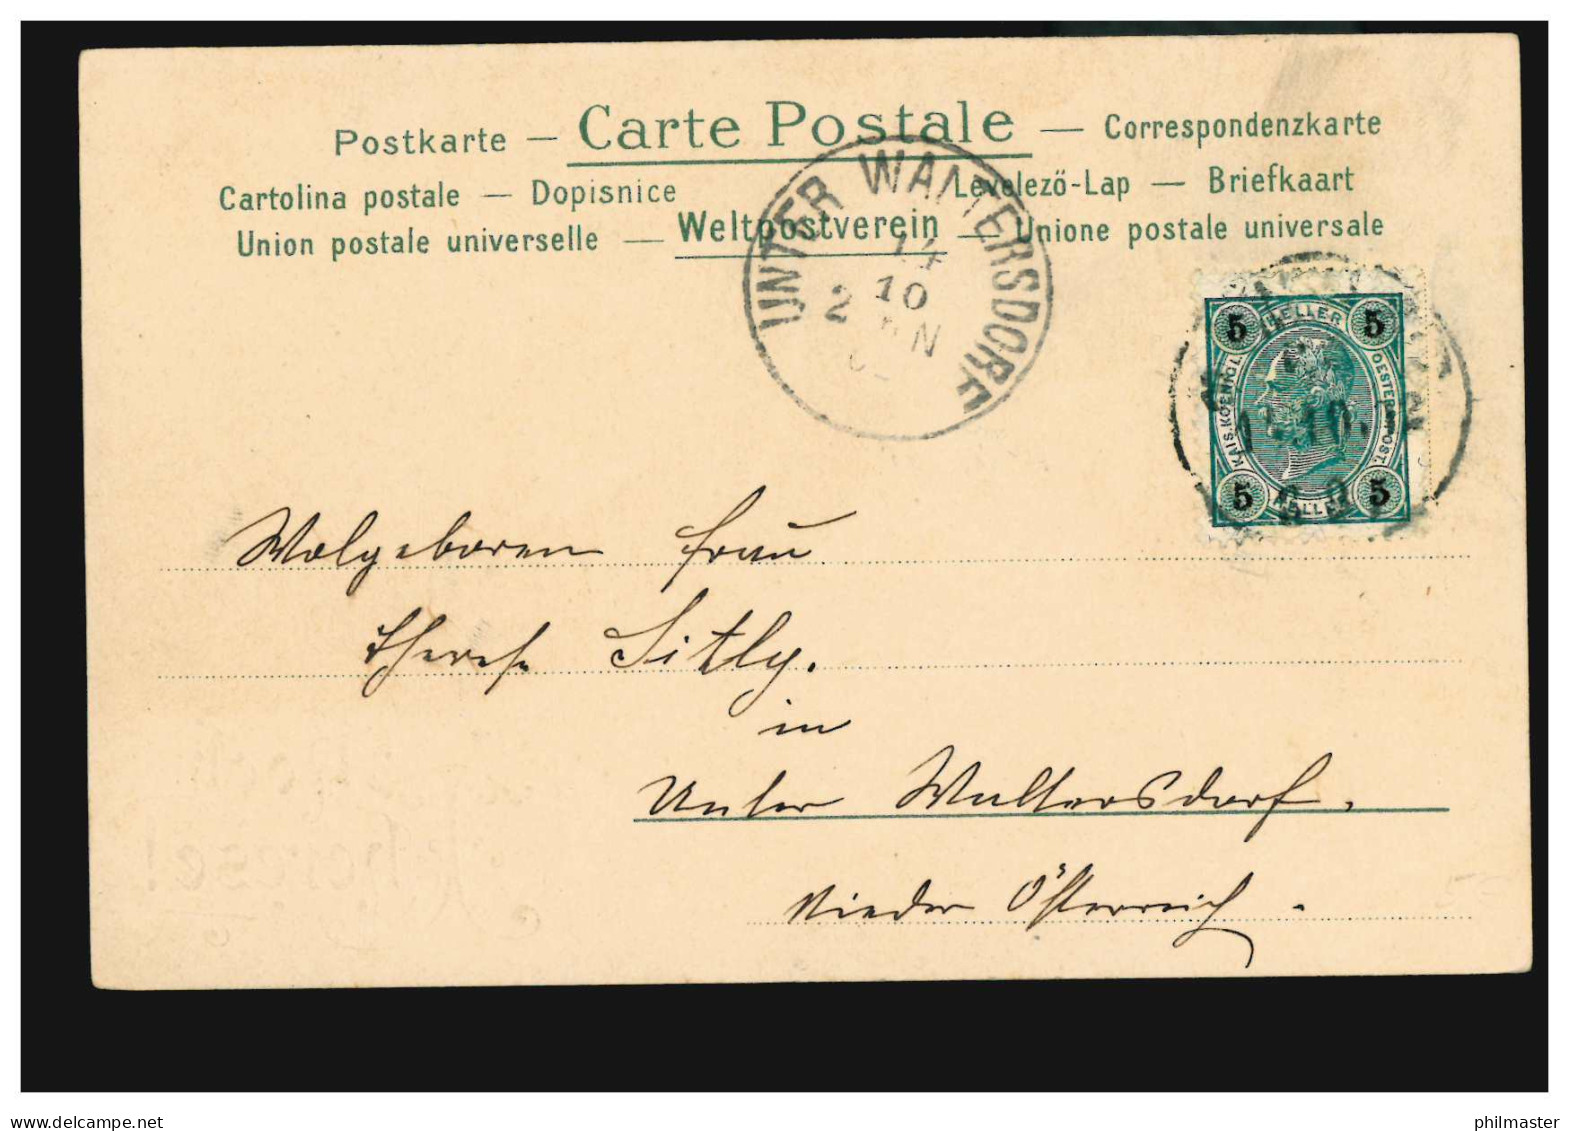 Postkarte — Carte Postale — Correspondenzkarte
Cartolina postale — Dopisnice
Levelező-Lap — Briefkaart
Union postale universelle — Weltpostverein — Unione postale universale
UNTER WALTERSDORF
14
10
2 N
5 HELLER 5
KAIS. KOENIGL. OESTERR. POST.
5 HELLER 5
Wolgeboren Frau
Therese Sitly.
in
Unter Waltersdorf.
Nieder Österreich.
Therese!
www.delcampe.net
philmaster